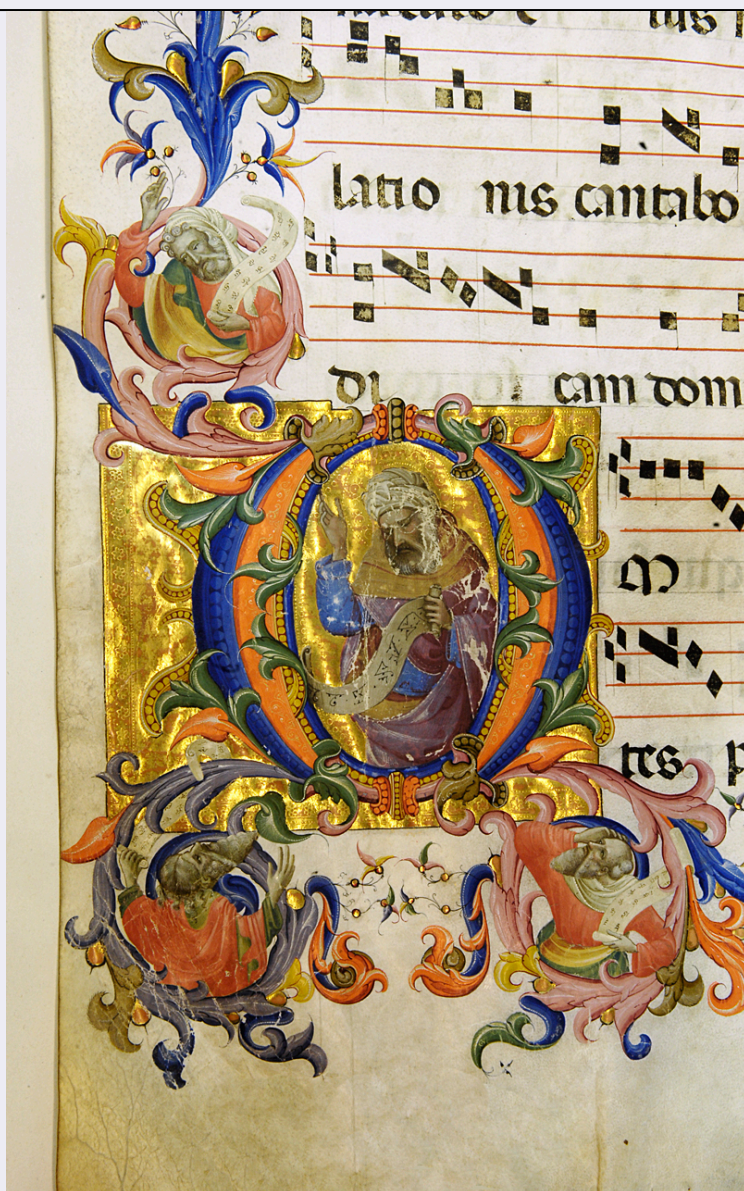 latio nis cantabo
di cam dom
O
m
tes p